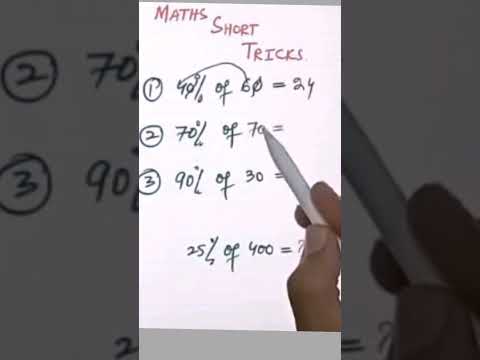 MATHS
SHORT
TRICKS
① 40% of 60 = 24
② 70% of 70 =
③ 90% of 30 =
25% of 400 = ?